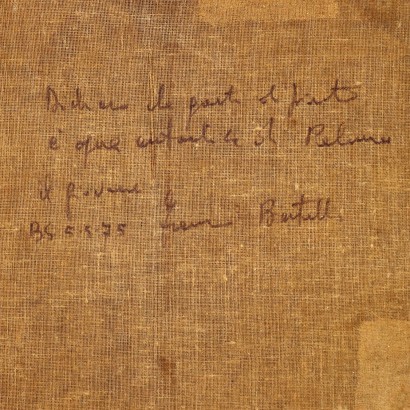 Dichiaro che questo dipinto
è opera autentica di Palma
il giovane
BS 5.5.75 Bertelli